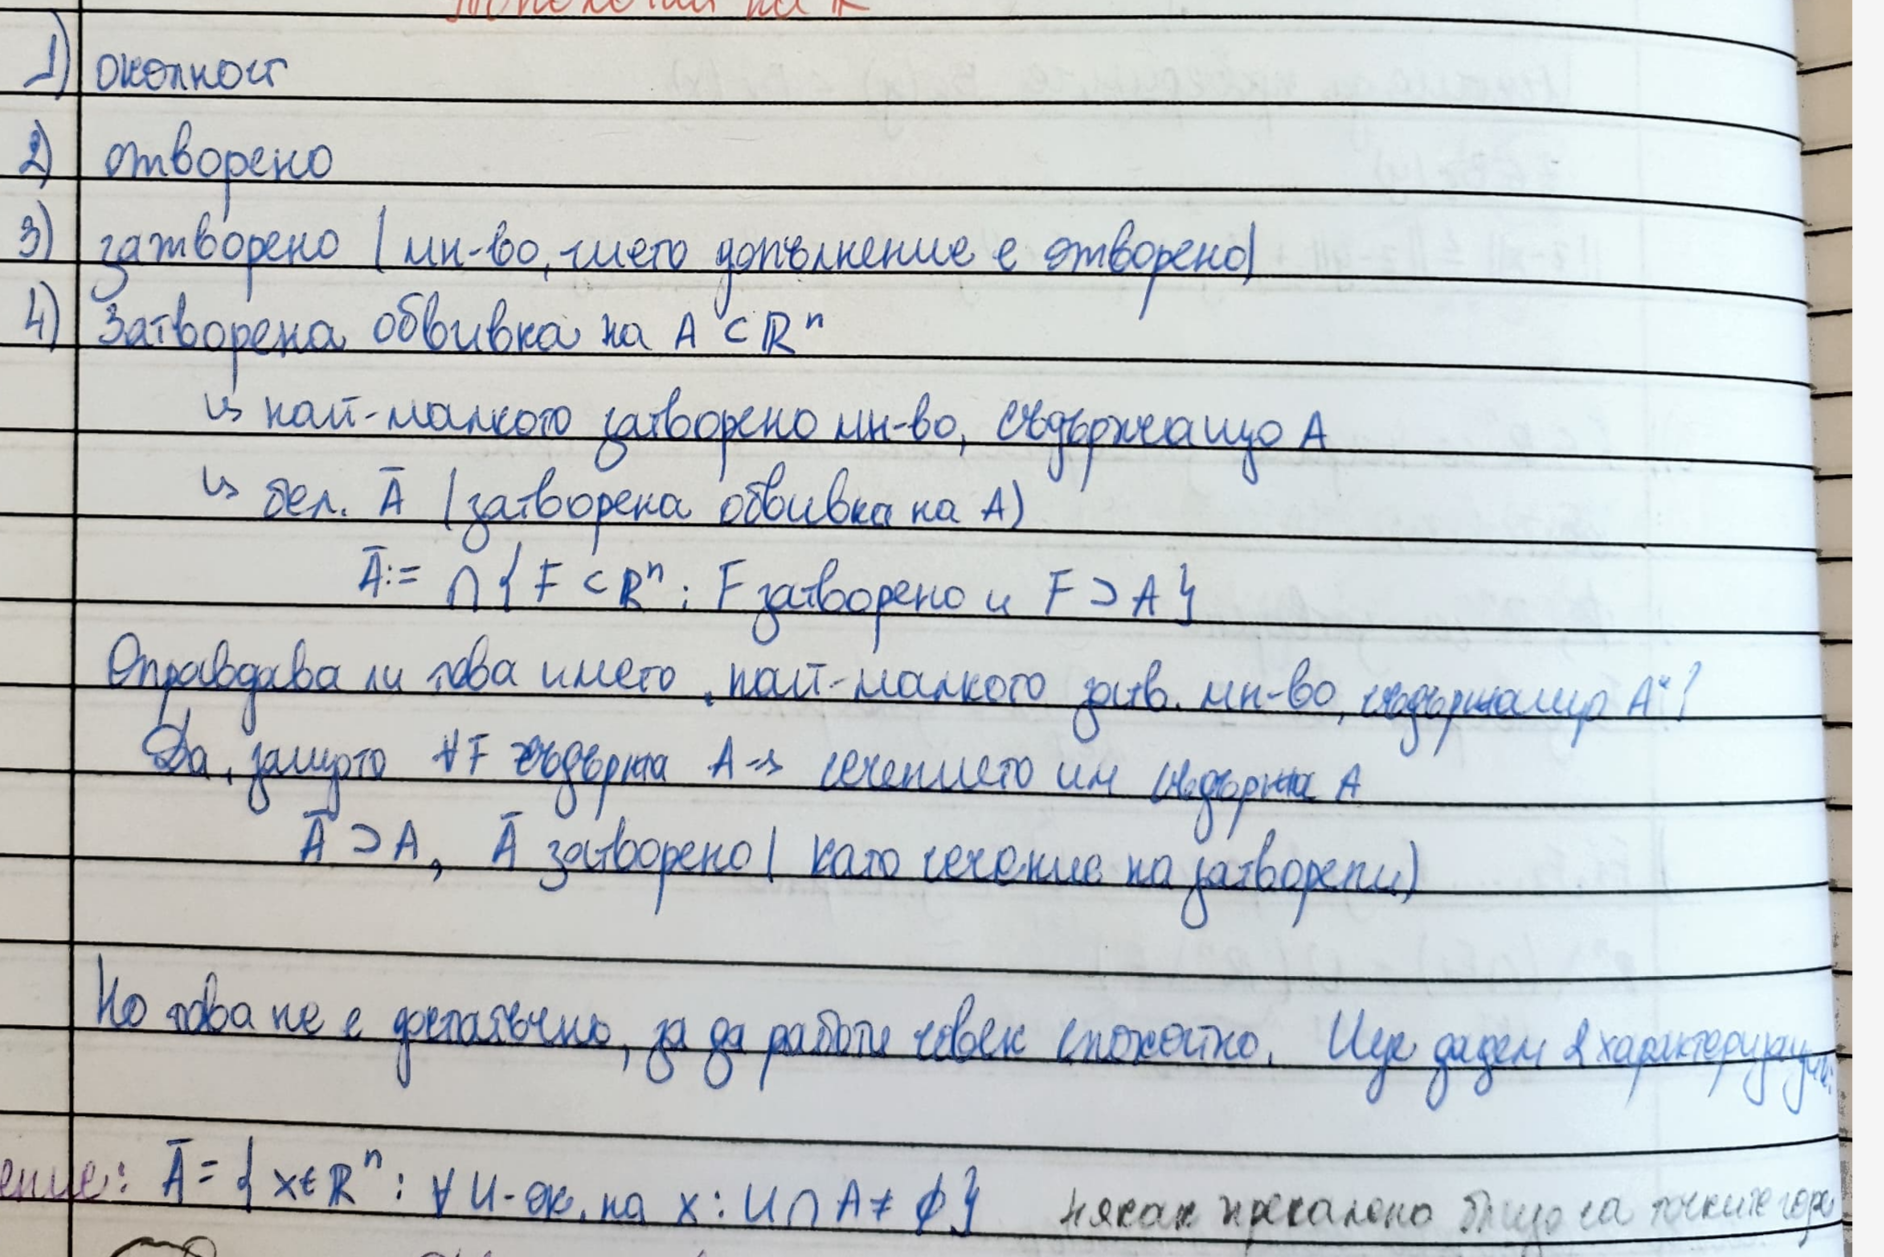 Топология на R
1) околност
2) отворено
3) затворено (мн-во, чието допълнение е отворено)
4) Затворена обвивка на A ⊂ ℝⁿ
↳ най-малкото затворено мн-во, съдържащо A
↳ бел. Ā (затворена обвивка на A)
Ā := ∩ { F ⊂ ℝⁿ : F затворено и F ⊃ A }
Оправдава ли това името „най-малкото затв. мн-во, съдържащо A“?
Да, защото ∀F съдържа A → сечението им съдържа A
Ā ⊃ A, Ā затворено (като сечение на затворени)
Но това не е достатъчно, за да работи човек спокойно. Ще дадем 2 характеризации:
ение: Ā = { x ∈ ℝⁿ : ∀ U - ок. на x : U ∩ A ≠ ∅ } някак прекалено близо са точките